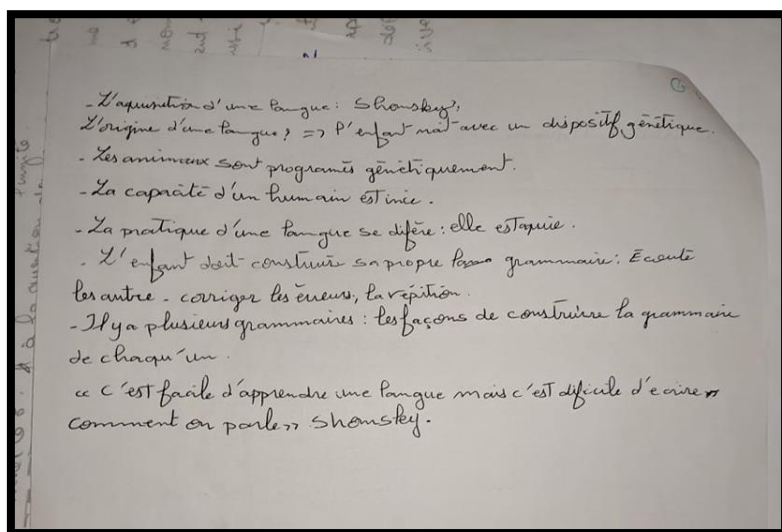 - L'aqusition d'une langue : Shomsky,
L'origine d'une langue ? => l'enfant naît avec un dispositif génétique.
- Les animaux sont programés génétiquement.
- La capacité d'un humain est inée.
- La pratique d'une langue se difère : elle est aquie.
- L'enfant doit construire sa propre grammaire : Écouté
les autre - corriger les éreurs, la répition.
- Il y a plusieurs grammaires : les façons de construire la grammaire
de chaqu'un.
« C'est facile d'apprendre une langue mais c'est dificile d'ecrire
comment on parle » Shomsky.